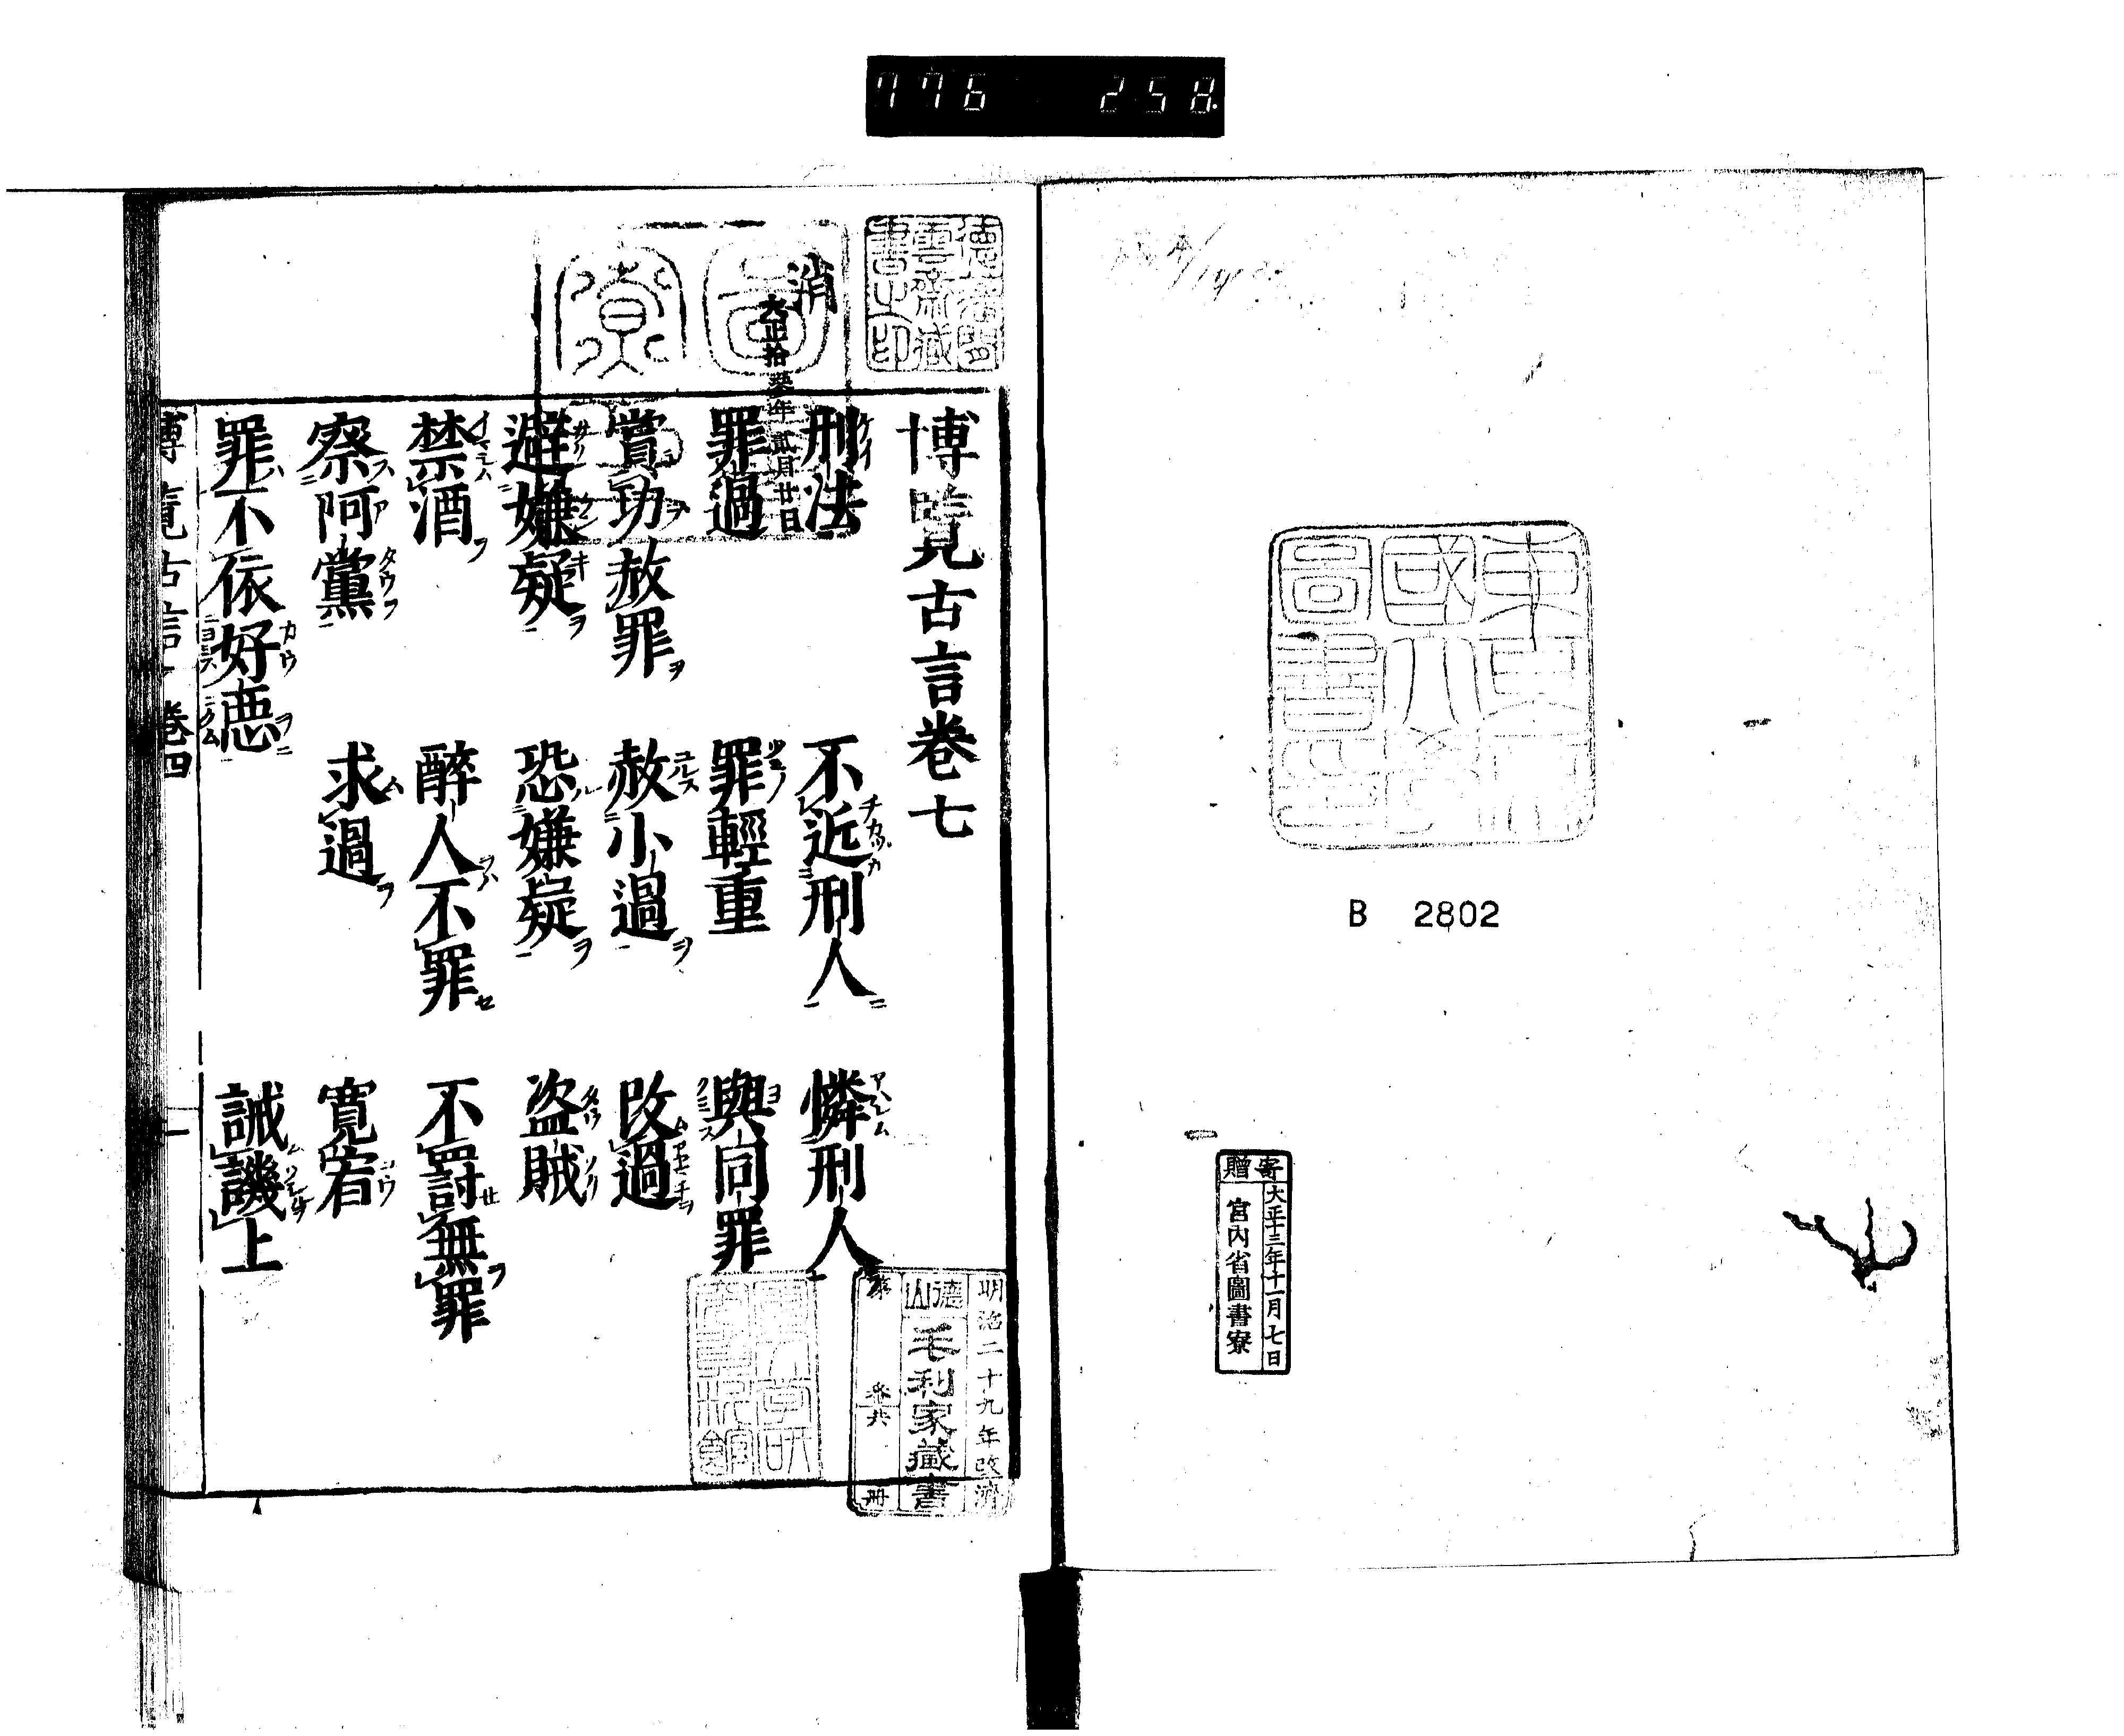 776 258
B 2802
寄贈
大正十三年十一月七日
宮内省圖書寮
德藩
雲齋藏
書之印
消
大正拾參年貳月廿日
博覧古言巻七
刑法 不近刑人 憐刑人
罪過 罪輕重 與同罪
賞功赦罪 赦小過 改過
避嫌疑 恐嫌疑 盗賊
禁酒 醉人不罪 不罸無罪
察阿黨 求過 寛宥
罪不依好惡 誡譏上
博覧古言 巻四 一
明治二十九年改濟
德山
毛利家藏書
第 番共 册